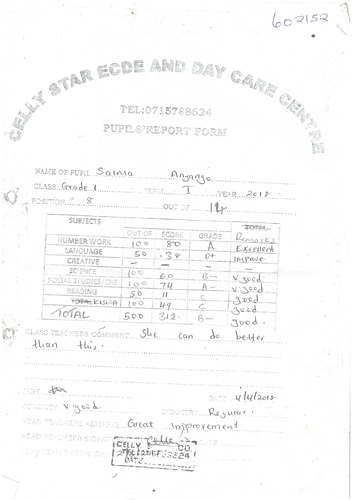 602152
CELLY STAR ECDE AND DAY CARE CENTRE
TEL:0715788624
PUPILS' REPORT FORM
NAME OF PUPIL Salma Anyango
CLASS: Grade 1 TERM I YEAR 2018
POSITION 8 OUT OF 14
SUBJECTS OUT OF SCORE GRADE TOTAL Remarks
NUMBER WORK 100 80 A Excellent
LANGUAGE 50 38 D+ Improve
CREATIVE - - - -
SCIENCE 100 60 B- V.good
SOCIAL STUDIES/CRE 100 74 A- V.good
READING 50 11 C good
TOTAL KISWA 100 49 C good
TOTAL 500 312 B- good.
CLASS TEACHERS COMMENT. She can do better
than this.
DATE 4/4/2018
CONDUCT. V.good INDUSTRY Regular
HEAD TEACHERS REMARKS Great Improvement
HEAD TEACHERS SIGNATURE
CELLY
DATE